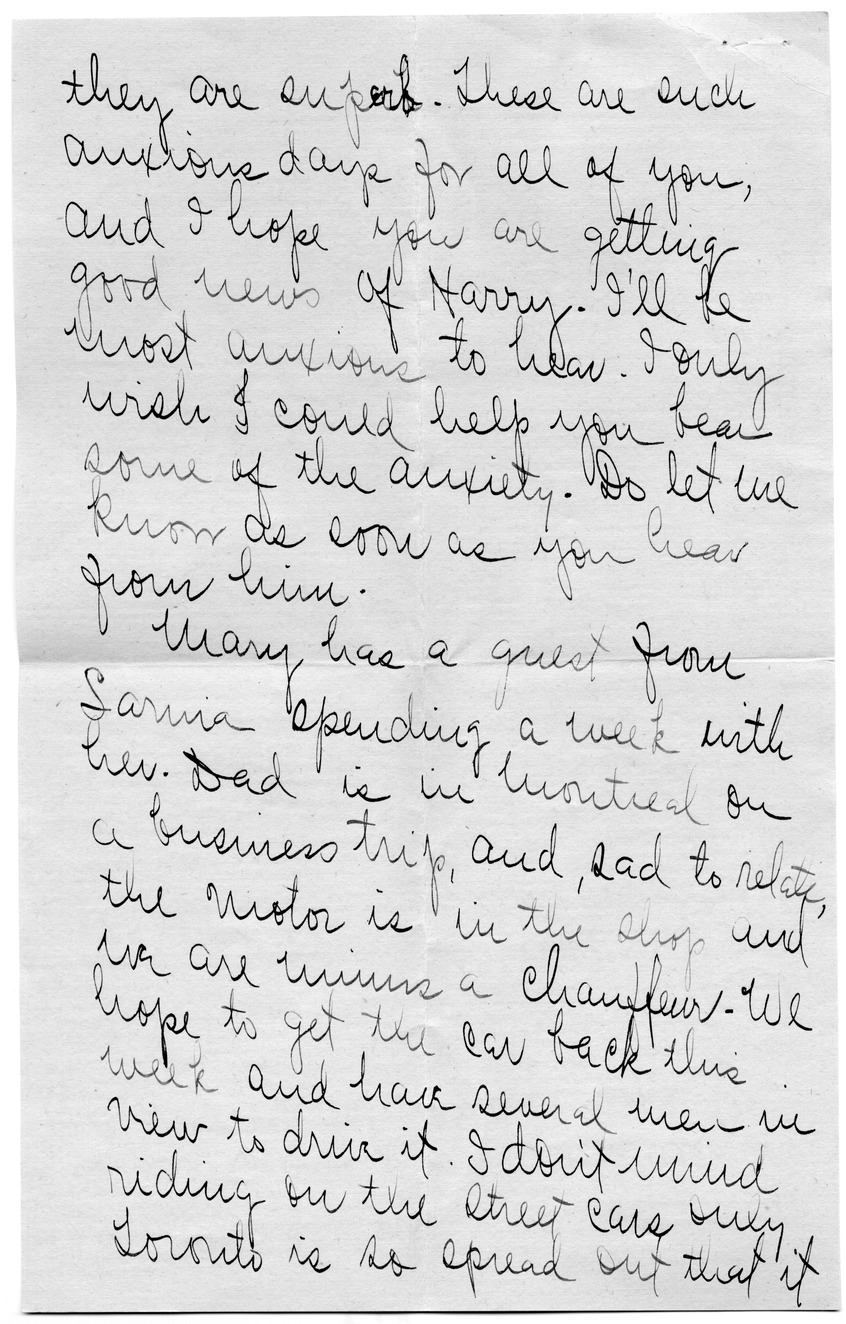 they are superb. These are such
anxious days for all of you,
and I hope you are getting
good news of Harry. I'll be
most anxious to hear. I only
wish I could help you bear
some of the anxiety. Do let me
know as soon as you hear
from him.
Mary has a guest from
Sarnia spending a week with
her. Dad is in Montreal on
a business trip, and, sad to relate,
the motor is in the shop and
we are minus a chauffeur - We
hope to get the car back this
week and have several men in
view to drive it. I don't mind
riding on the street cars only
Toronto is so spread out that it